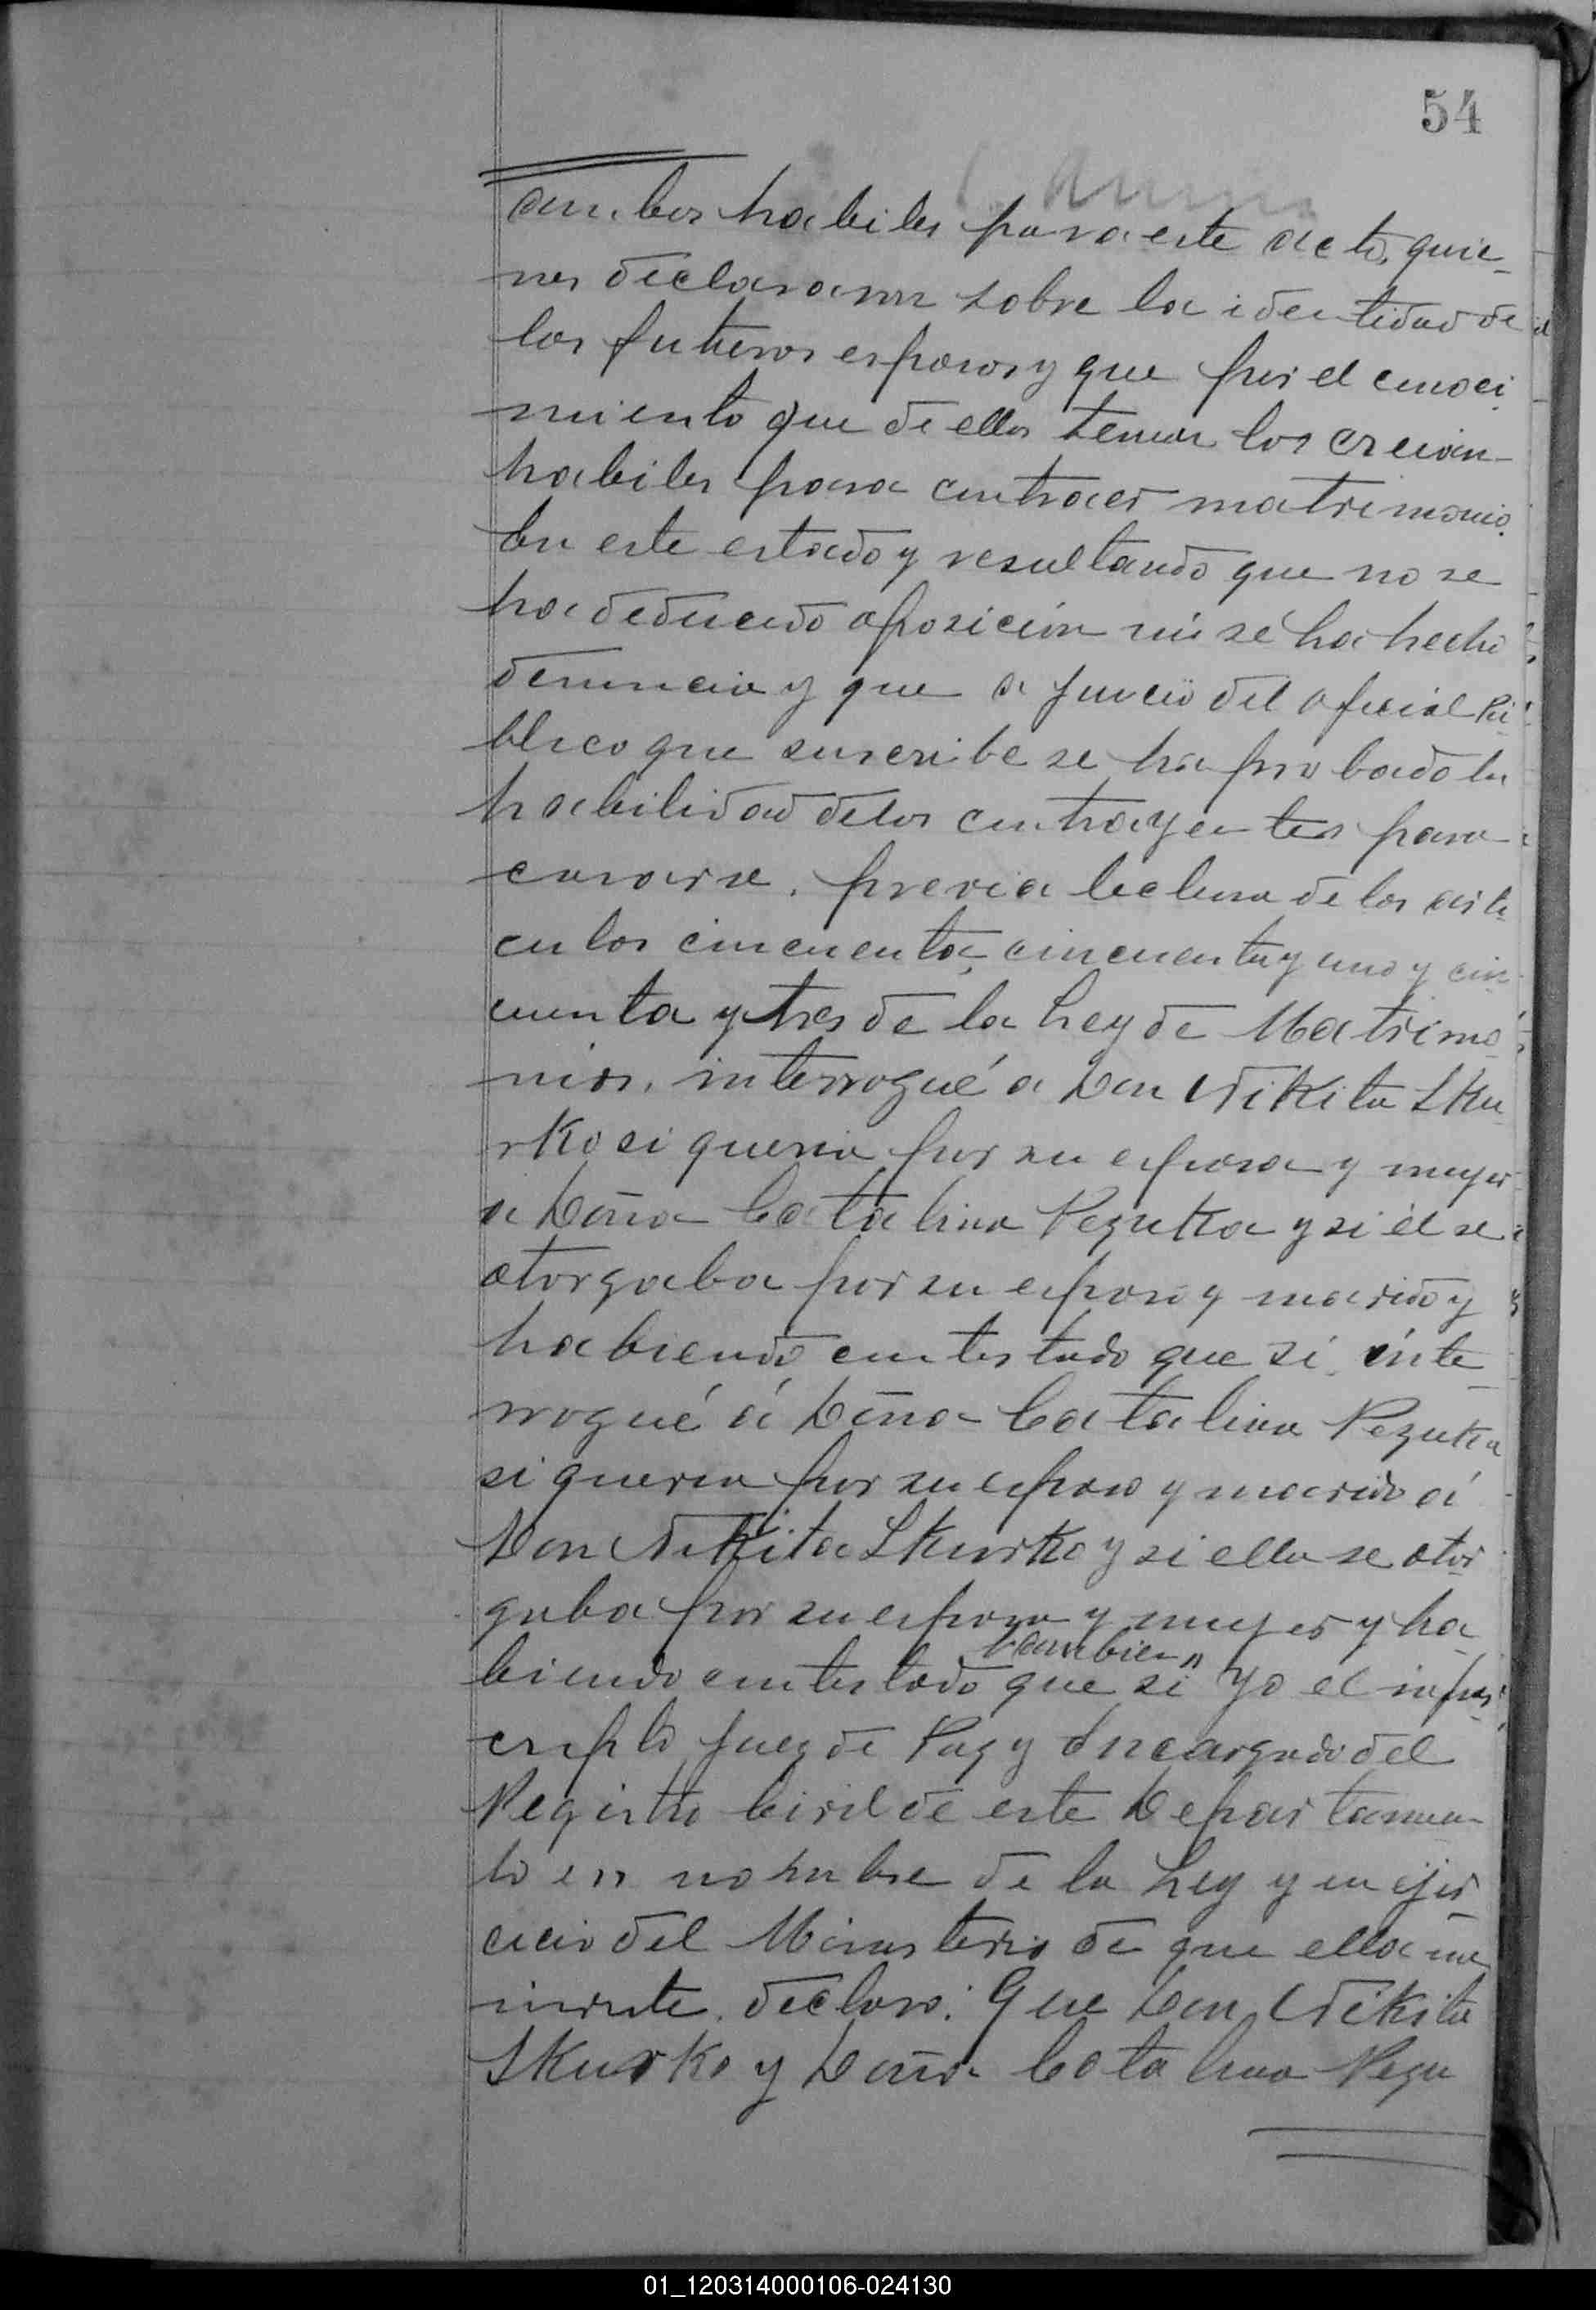 54
ambos habiles para este acto, quie-
nes declararon sobre la identidad de
los futuros esposos y que por el conoci
miento que de ellos tenian los creian
habiles para contraer matrimonio.
En este estado y resultando que no se
ha deducido oposición ni se ha hecho
denuncia y que a juicio del oficial Pú
blico que suscribe se ha probado la
habilidad de los contrayentes para
casarse, previa lectura de los arti
culos cincuenta, cincuenta y uno y cin
cuenta y tres de la Ley de Matrimo
nios, interrogué a Don Nikita Sku
rko si queria por su esposa y mujer
a Doña Catalina Rezutka y si él se
otorgaba por su esposo y marido y
habiendo contestado que si, inte
rrogué á Doña Catalina Rezutka
si queria por su esposo y marido á
Don Nikita Skurko y si ella se otor
gaba por su esposa y mujer y ha
tambien
biendo contestado que si Yo el infras
cripto Juez de Paz y Encargado del
Registro Civil de este Departamen
to en nombre de la Ley y en ejer
cicio del Ministerio de que ella me
inviste, declaro: Que Don Nikita
Skurko y Doña Catalina Rezu
01_120314000106-024130